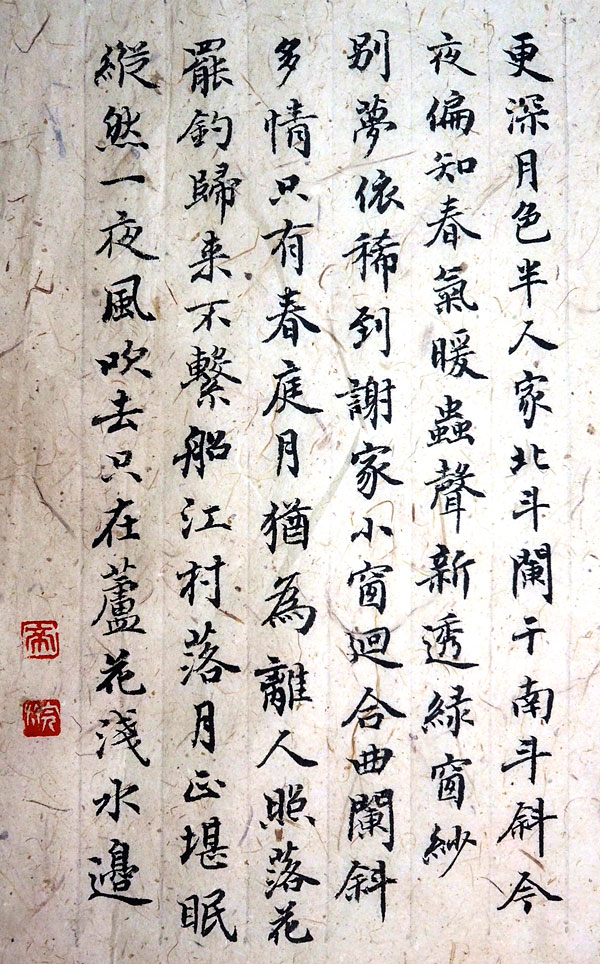 更深月色半人家北斗闌干南斗斜今
夜偏知春氣暖蟲聲新透綠窗紗
別夢依稀到謝家小窗迴合曲闌斜
多情只有春庭月猶為離人照落花
罷釣歸来不繫船江村落月正堪眠
縱然一夜風吹去只在蘆花淺水邊